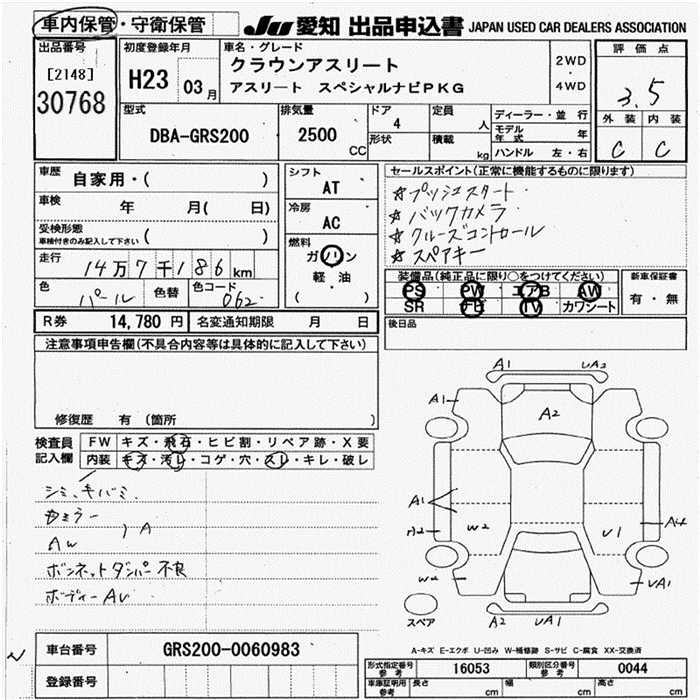 車内保管・守衛保管
JU 愛知 出品申込書 JAPAN USED CAR DEALERS ASSOCIATION
出品番号
[2148]
30768
初度登録年月
H23 03月
車名・グレード
クラウンアスリート
アスリート スペシャルナビPKG
2WD
・
4WD
評価点
3.5
外装 内装
C C
型式
DBA-GRS200
排気量
2500
CC
ドア
4
形状
定員
人
積載
kg
ディーラー・並行
モデル年式 年
ハンドル 左・右
車歴
自家用・( )
車検
年 月( 日)
受検形態
車検付きのみ記入して下さい ( )
走行
14万7千186km
色
パール
色替
色コード
062
シフト
AT
冷房
AC
燃料
ガソリン
軽・油
( )
セールスポイント(正常に機能するものに限ります)
☆プッシュスタート
☆バックカメラ
☆クルーズコントロール
☆スペアキー
装備品(純正品に限り○をつけてください)
PS PW エアB AW
SR ナビ TV カワシート
新車保証書
有・無
後日品
R券 14,780円 名変通知期限 月 日
注意事項申告欄(不具合内容等は具体的に記入して下さい)
修復歴 有 (箇所 )
検査員記入欄
FW キズ・飛石・ヒビ割・リペア跡・X要
内装 キズ・汚レ・コゲ・穴・スレ・キレ・破レ
シミ、キバミ
AW
A
ボンネットダンパー不良
ボディーAU
A1 UA2
A1
A2
A1
A2
W2
U1
A4
W2
UA1
A2 UA1
スペア
A-キズ E-エクボ U-凹み W-補修跡 S-サビ C-腐食 XX-交換済
車台番号 GRS200-0060983
登録番号
形式指定番号参考 16053 類別区分番号参考 0044
車庫証明用参考 長さ cm 幅 cm 高さ cm